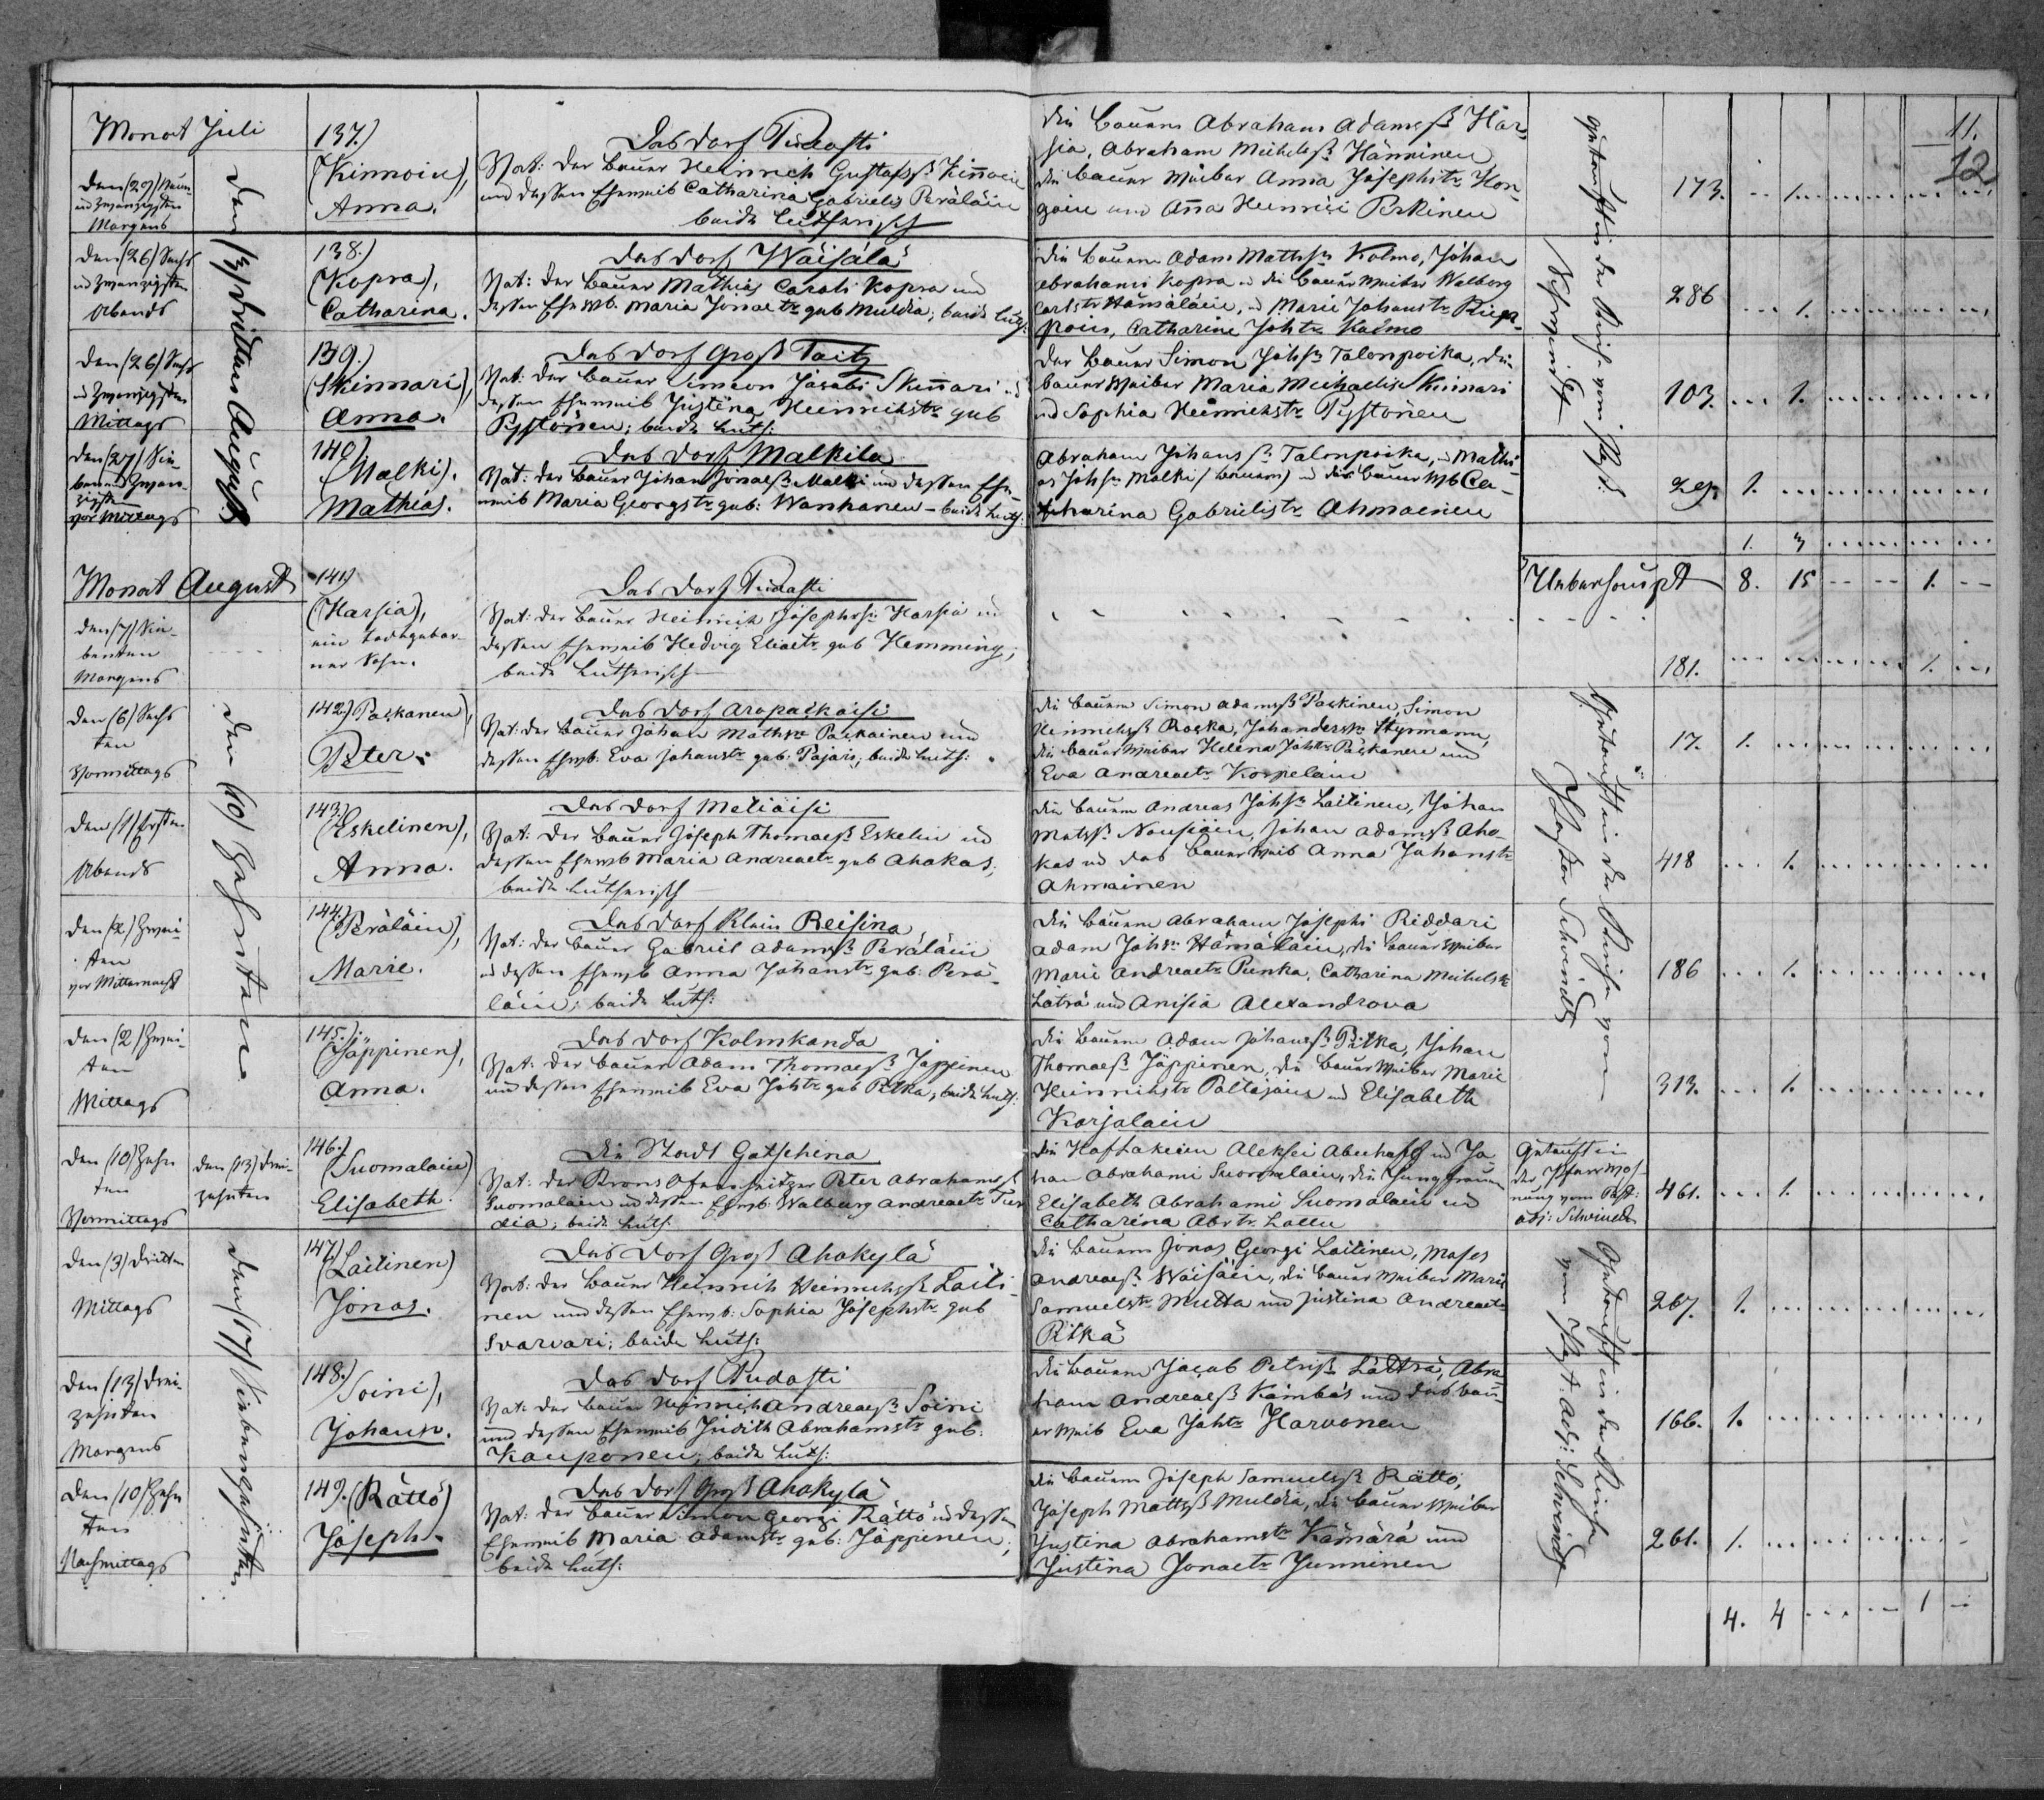 11.
12
Monat Juli
den (29) Neun-
und zwanzigsten
Morgens
den (3) dritten August
137.)
(Kinnoin),
Anna.
Das Dorf Pudasti
Vat: der Bauer Heinrich Gustafsß Kinnoin
und dessen Eheweib Catharina Gabrielis Peräläin
beide Lutherisch
die Bauern Abraham Adamsß Har-
sia, Abraham Michelsß Hänninen
die Bauer Weiber Anna Josephstr Kon-
goin und Anna Heinrici Pekinen
getauft in der Kirche vom Past:
Schwindt
173. 1.
den (26) Sechs
und zwanzigsten
Abends
138.)
(Kopra),
Catharina.
Das Dorf Wäisälä
Vat: der Bauer Mathias Caroli Kopra und
dessen Ehewb. Maria Jonaetr geb Muldia; beide Luth:
die Bauern Adam Mathsßn Kolmo, Johan
Abrahami Kopra u die Bauer Weiber Walborg
Carlstr Hämäläin, u Marie Johanstr Riep-
poin, Catharine Johtr Kolmo
286 1.
den (26) Sechs
und zwanzigsten
Mittags
139.)
(Skinnari),
Anna.
Das Dorf Groß Taitz
Vat: der Bauer Simeon Jacobi Skinnari und
dessen Eheweib Justina Heinrichstr geb
Pystönen; beide Luth:
Der Bauer Simon Johßn Talonpoika, die
Bauer Weiber Maria Michaelis Skinnari
und Sophia Heinrichstr Pystönen
103. 1.
den (27) Sie-
ben und zwan-
zigsten
vor Mittags
140.)
(Malki).
Mathias.
Das Dorf Malkila
Vat: der Bauer Johan Jonaesß Malki und dessen Ehe-
weib Maria Georgstr geb: Wanhanen - beide Luth:
Abraham Johansßn Talonpoika, u Mathi-
as Johßn Malki (Bauern) u das Bauer Wb Ca-
tharina Gabrielistr Ahmoinen
29. 1.
1. 3
Ueberhaupt 8. 15 1.
Monat August
den (7) Sie-
benten
Morgens
141.)
(Harsia),
ein todtgebor-
ner Sohn.
Das Dorf Pudasti
Vat: der Bauer Heinrich Josephsßn Harsia und
dessen Eheweib Hedvig Eliaetr geb Hemming;
beide Lutherisch
181. 1.
den (6) Sechs
ten
Vormittags
den (10) Zehnten
142.) (Paskanen),
Peter.
Das Dorf Aropaikaisi
Vat: der Bauer Johan Mathsßn Paskainen und
dessen Ehewb. Eva Johanstr geb. Pajari; beide Luth:
die Bauern Simon Adamsß Paskinen, Simon
Heinrichsß Raska, Johan Styrmann,
die Bauer Weiber Helena Johtr Paskanen und
Eva Andreaetr Korpelain
Getauft in der Kirche vom
Pastor Schwindt
17. 1.
den (1) Ersten
Abends
143.)
(Eskelinen),
Anna.
Das Dorf Metiäisi
Vat: der Bauer Joseph Thomaesß Eskelin und
dessen Ehewb Maria Andreaetr geb Ahokas;
beide Lutherisch
die Bauern Andreas Johßn Laitinen, Johan
Matsß Nousiäin, Johan Adamsß Aho-
kas und das Bauer Weib Anna Johanstr
Ahmainen
418 1.
den (2) Zwei-
ten
vor Mitternacht
144.)
(Peräläin),
Marie.
Das Dorf Klein Reisina
Vat: der Bauer Gabriel Adamsßn Peräläin
u dessen Ehewb Anna Johanstr geb: Perä-
läin; beide Luth:
die Bauern Abraham Josephi Riddari
Adam Johßn Hämäläin, die Bauer Weiber
Marie Andreaetr Punka, Catharina Michelstr
Läträ und Anisia Alexandrova
186 1.
den (2) Zwei-
ten
Mittags
145.)
(Jäppinen),
Anna.
Das Dorf Kolmkanda
Vat: der Bauer Adam Thomaesß Jäppinen
und dessen Eheweib Eva Johtr geb Pitka; beide Luth:
die Bauern Adam Johansß Pitka, Johan
Thomaesß Jäppinen, die Bauer Weiber Marie
Heinrichstr Pallajain und Elisabeth
Karjalain
313. 1.
den (10) Zehn
ten
Vormittags
den (13) drei-
zehnten
146.)
(Suomalain)
Elisabeth.
Die Stadt Gatschina
Vat: der Krons Peter Abrahamsß
Suomalain und dessen Ehewb. Walburg Andreaetr Tur
dia; beide Luth:
Die Aleksei und Jo
han Abrahami Suomalain, die Jungfrauen
Elisabeth Abrahami Suomalain und
Catharina Abrtr. Lallu
Getauft in
der Pfarrwoh-
nung vom Past:
adj: Schwindt
461. 1.
den (3) Dritten
Mittags
den (17) Siebenzehnten
147.)
(Laitinen)
Jonas.
Das Dorf Groß Ahokylä
Vat: der Bauer Heinrich Heinrichsß Laiti-
nen und dessen Ehewb: Sophia Josephstr geb
Svarvari; beide Luth:
die Bauern Jonas Georgi Laitinen, Moses
Andreaesß Wäisäin, die Bauer Weiber Marie
Samuelstr Mutta und Justina Andreaetr
Pitkä
Getauft in der Kirche
vom Past. adj: Schwindt
267. 1.
den (13) Drei-
zehnten
Morgens
148.)
(Soini),
Johann.
Das Dorf Pudasti
Vat: der Bauer Heinrich Andreaesß Soini
und dessen Eheweib Judith Abrahamstr geb.
Kauponen; beide Luth:
die Bauern Jacob Petrisßn Lätträ, Abra-
ham Andreaesß Kämbäs und das Bau-
er Weib Eva Johtr Harvonen
166. 1.
den (10) Zehn
ten
Nachmittags
149. (Rättö)
Joseph.
Das Dorf Groß Ahokylä
Vat: der Bauer Simon Georgi Rättö und dessen
Eheweib Maria Adamstr geb: Jäppinen;
beide Luth:
die Bauern Joseph Samuelsß Rättö,
Joseph Mattsß Muldia, die Bauer Weiber
Justina Abrahamstr Kämärä und
Justina Jonaetr Junninen
261. 1.
4. 4 1